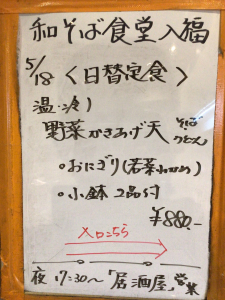 和そば食堂入福
5/18 〈日替定食〉
温・冷)
野菜かきあげ天 そば うどん
・おにぎり(若菜
・小鉢 2品付
¥880.-
入口こちら
夜 17:30〜「居酒屋」営業